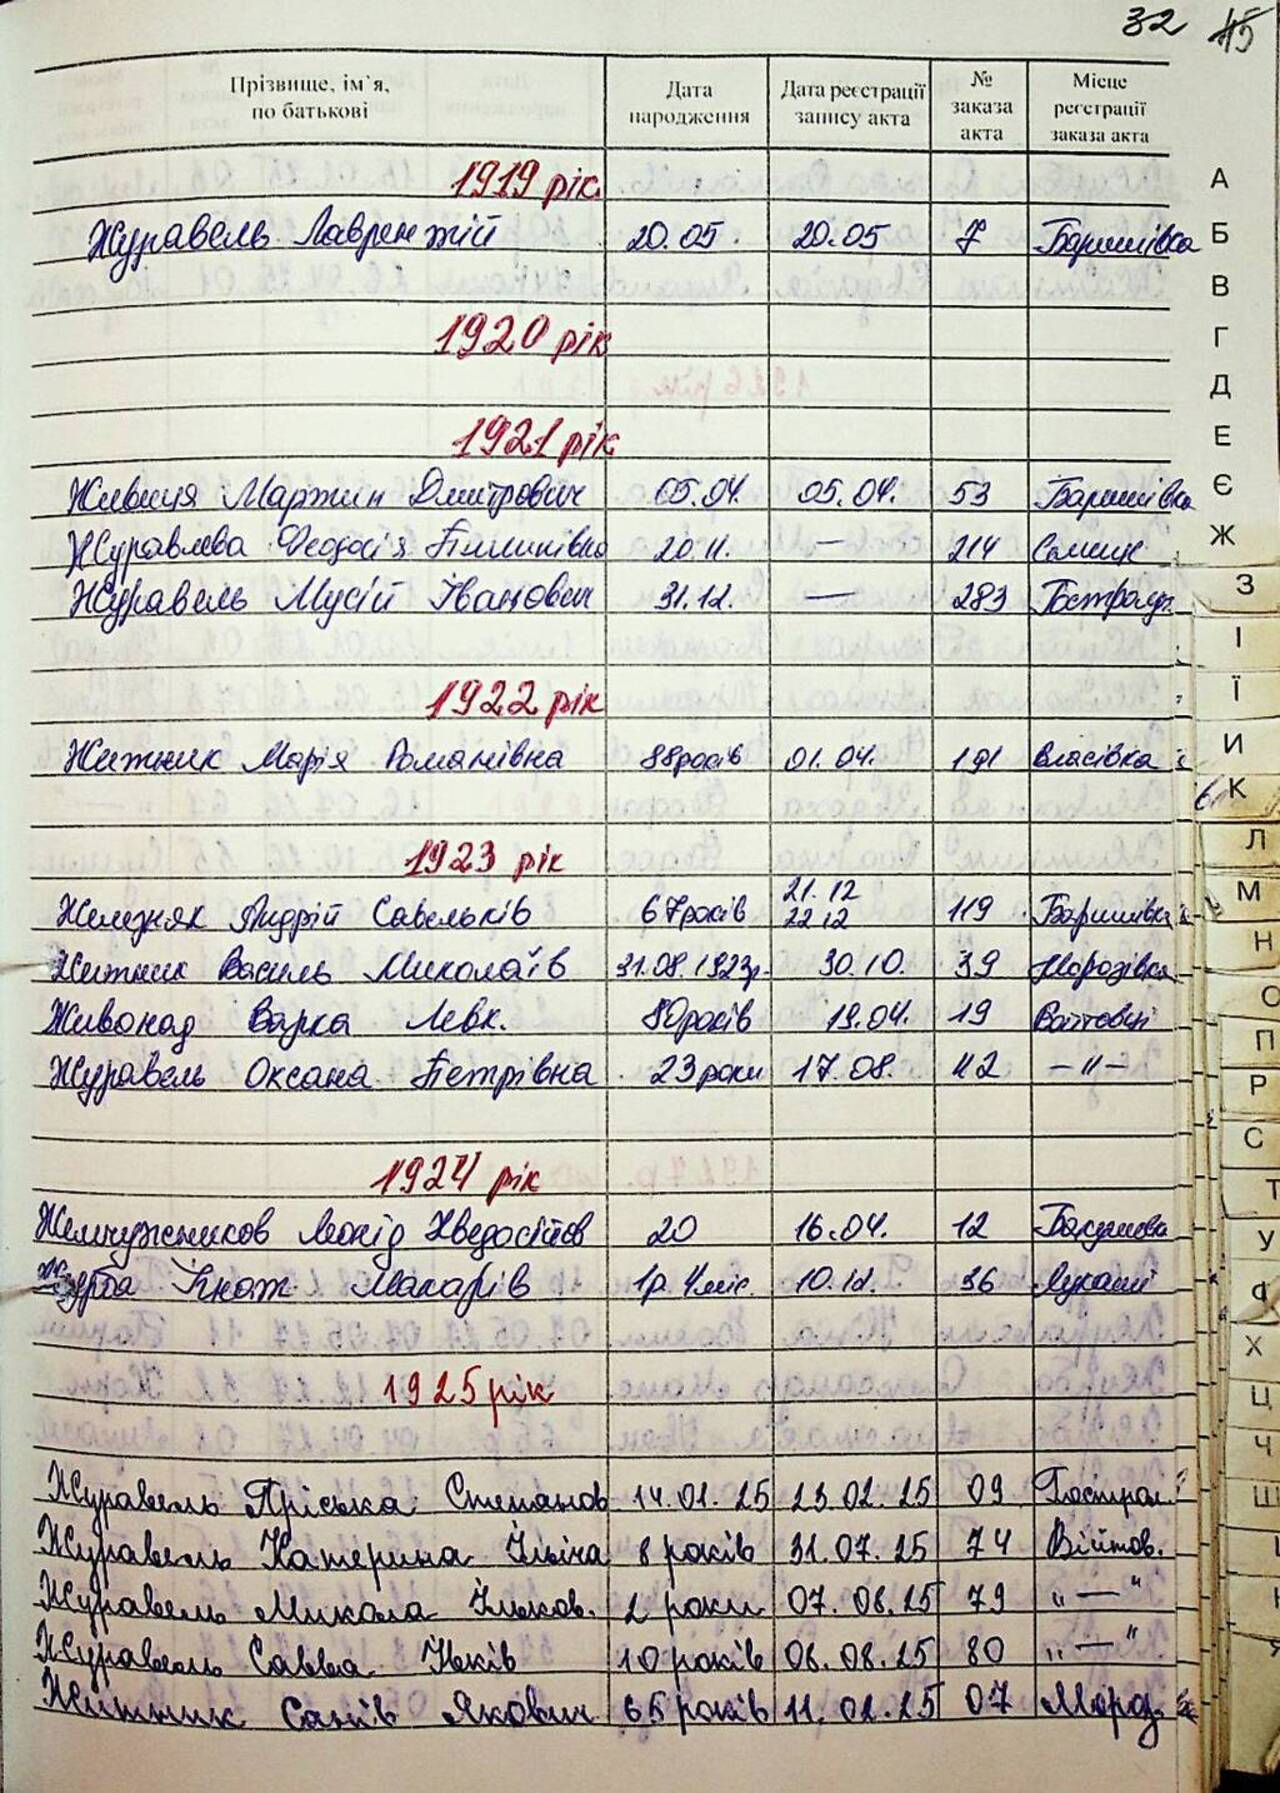 32 45
Прізвище, ім`я, по батькові Дата народження Дата реєстрації запису акта № заказа акта Місце реєстрації заказа акта
1919 рік.
Журавель Лаврентій 20.05. 20.05 7 Баришівка
1920 рік
1921 рік
Живиця Мартин Дмитрович 05.04. 05.04. 53 Баришівка
Журавлева Феодосія Пилипівна 20.11. — 214 Селище
Журавель Мусій Іванович 31.12. — 283 Гостролуч.
1922 рік
Житник Марія Романівна 88років 01.04. 191 Власівка
1923 рік
Железняк Андрій Савельків 67років 21.12 22.12 119 Баришівка
Житник Василь Миколаїв 31.08.1923р. 30.10. 39 Морозівка
Живонад Варка Левк. 80років 19.04. 19 Войтовці
Журавель Оксана Петрівна 23роки 17.08. 42 -"-
1924 рік
Жемчужников Леонід 20 16.04. 12
Журба Гнат Макарів 1р.4міс. 10.12. 36 Лукаші
1925 рік
Журавель Пріська Степанов 14.01.25 23.02.25 09 Гострол.
Журавель Катерина Ільїча 8 років 31.07.25 74 Війтов.
Журавель Микола Ільков. 2 роки 07.08.25 79 „—"
Журавель Савва Ільків 10 років 08.08.25 80 „—"
Житник Якович 65 років 11.02.25 07 Мороз.
А
Б
В
Г
Д
Е
Є
Ж
З
І
Ї
И
К
Л
М
Н
О
П
Р
С
Т
У
Ф
Х
Ц
Ч
Ш